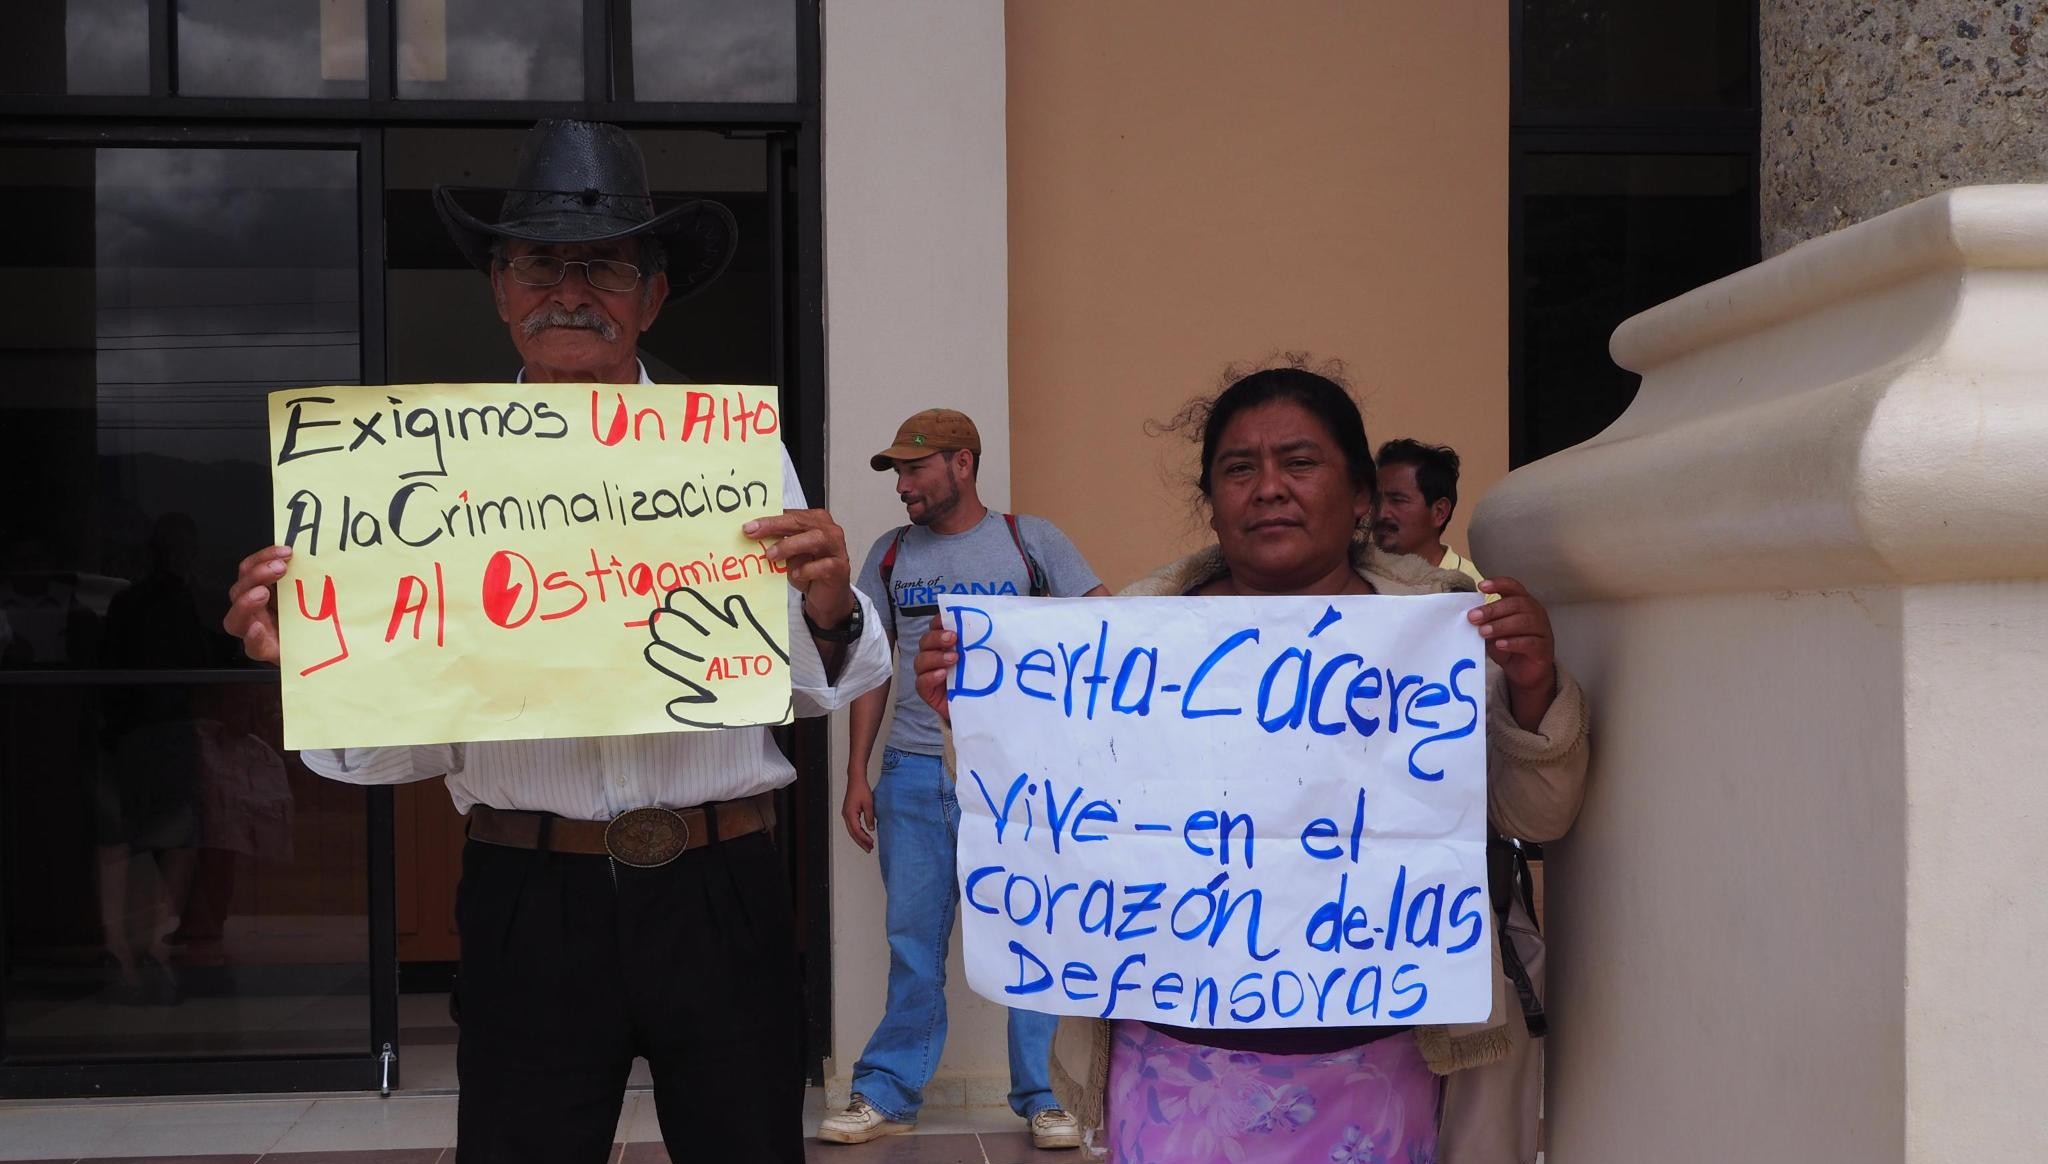 Exigimos Un Alto
A la Criminalización
y Al Ostigamiento
ALTO
Bank of
URBANA
Berta-Cáceres
Vive-en el
corazón de-las
Defensoras